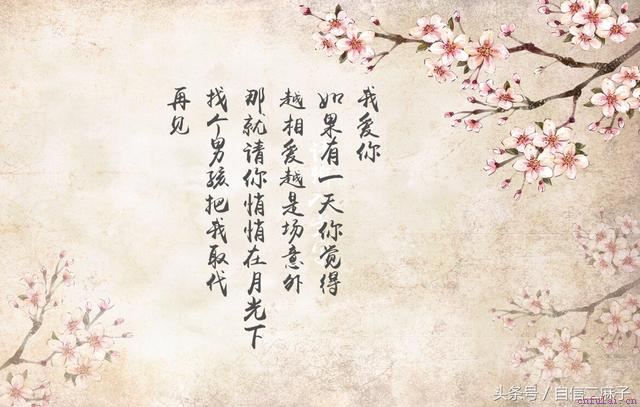 我爱你
如果有一天你觉得
越相爱越是场意外
那就请你悄悄在月光下
找个男孩把我取代
再见
头条号／自信二麻子
cnfulai.cn